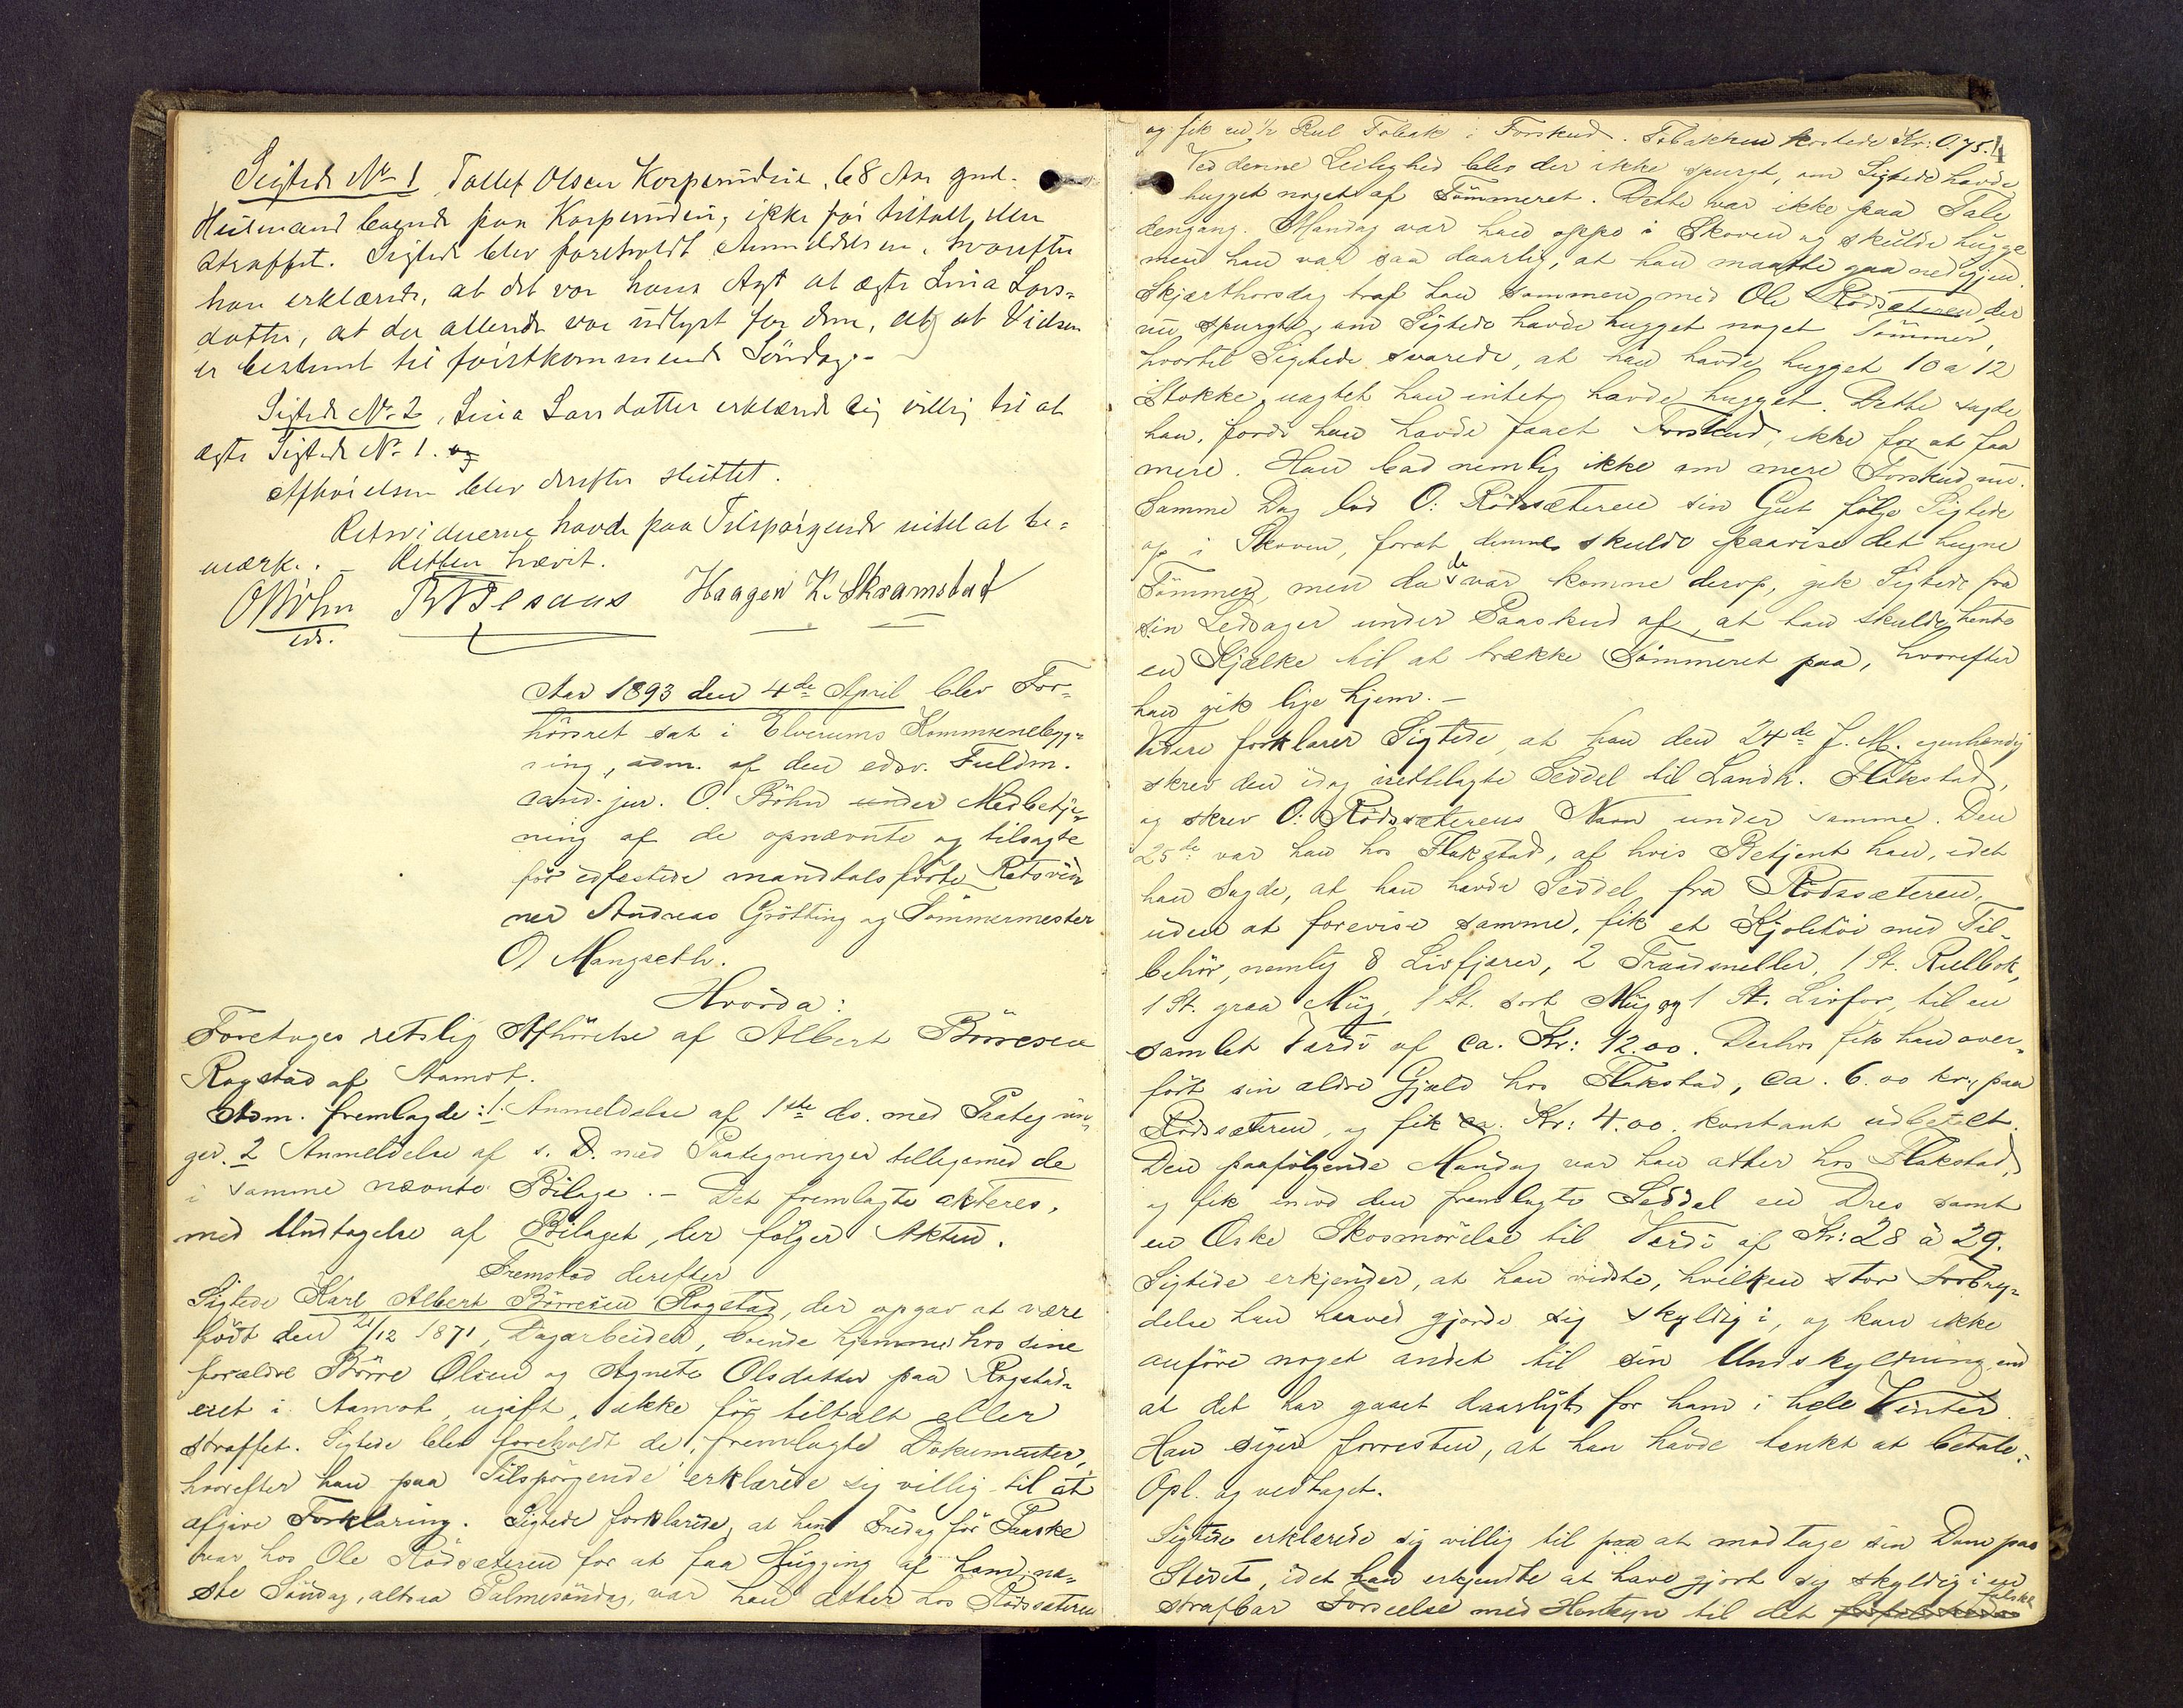 Sigtede No 1 Tollef Olsen Korperudeie, 68 Aar gml.
Husmand boende paa Korperudeie, ikke før tiltalt eller
straffet. Sigtede blev foreholdt Anmeldelsen, hvorefter
han erklærede, at det var hans Agt at ægte Lina Lars-
datter, at der allerede var udlyst for dem, og at Vielsen
er bestemt til førstkommende Søndag.-
Sigtede No 2, Lina Larsdatter erklærede sig villig til at
ægte Sigtede No 1.
Afhørelsen blev derefter sluttet.
Retsvidnerne havde paa Tilspørgende intet at be-
mærke. - Retten hævet.
O Bøhn Haagen K. Skramstad
eds.
Aar 1893 den 4de April blev For-
hørsret sat i Elverums Kommunebyg-
ning, adm. af den edsv. Fuldm.
cand. jur. O. Bøhn under Medbetje-
ning af de opnævnte og tilsagte
før edfæstede mandtalsførte Retsvid-
ner Andreas Grøtting og Tømmermester
O Mangseth.
Hvorda:
Foretoges retslig Afhørelse af Albert Børresen
Rogstad af Aamot.
Adm. fremlagde: 1. Anmeldelse af 1ste ds. med Paategnin-
ger. 2 Anmeldelse af s. D. med Paategninger tilligemed de
i samme nævnte Bilage. - Det fremlagte akteres,
med Undtagelse af Bilaget, der følger Akten.
Fremstod derefter
Sigtede Karl Albert Børresen Rogstad, der opgav at være
født den 21/12 1871, Dagarbeider, boende hjemme hos sine
forældre Børre Olsen og Agnete Olsdatter paa Rogstad-
eiet i Aamot, ugift, ikke før tiltalt eller
straffet. Sigtede blev foreholdt de fremlagte Dokumenter,
hvorefter han paa Tilspørgende erklærede sig villig til at
afgive Forklaring. Sigtede forklarede, at han Fredag før Paaske
var hos Ole Rødsæteren for at faa Hugging af ham; næ-
ste Søndag, altsaa Palmesøndag, var han atter hos Rødssæteren
4
og fik en 1/2 Rul Tobak i Forskud. Tobakken kostede Kr: 0.75.
Ved denne Leilighed blev der ikke spurgt, om Sigtede havde
hugget noget af Tømmeret. Dette var ikke paa Tale
dengang. Mandag var han oppe i Skoven og skulde hugge
men han var saa daarlig, at han maatte gaa ned igjen.
Skjærthorsdag traf han sammen med Ole Rødsæteren, der
nu spurgte, om Sigtede havde hugget noget Tømmer,
hvortil Sigtede svarede, at han havde hugget 10 a 12
Stokke, uagtet han intet havde hugget. Dette sagde
han, fordi han havde faaet Forskud, ikke for at faa
mere. Han bad nemlig ikke om mere Forskud nu.
Samme Dag lod O: Rødssæteren sin Gut følge Sigtede
op i Skoven, forat denne skulde paavise det hugne
Tømmer, men da de var komne derop, gik Sigtede fra
sin Ledsager under Paaskud af, at han skulde hente
en Kjælke til at trække Tømmeret paa, hvorefter
han gik lige hjem. -
Videre forklarer Sigtede, at han den 24de f. M. egenhændig
skrev den idag irettelagte Seddel til Landh. Flakstad,
og skrev O: Rødssæterens Navn under samme. Den
25de var han hos Flakstad, af hvis Betjent han, idet
han sagde, at han havde Seddel fra Rødssæteren,
uden at forevise samme, fik et Kjoletøi med Til-
behør, nemlig 8 Livfjærer, 2 Traadsneller, 1 St. Rulbok,
1 St. graa Mug, 1 St. sort Mug og 1 St. Livfor, til en
samlet Værdi af ca. Kr: 12.00. Derhos fik han over-
ført sin ældre Gjæld hos Flakstad, ca. 6.00 kr., paa
Rødssæteren, og fik ca. Kr: 4.00. kontant udbetalt.
Den paafølgende Mandag var han atter hos Flakstad,
og fik mod den fremlagte Seddel en Dres samt
en Æske Skosmørelse til Værdi af Kr: 28 à 29.
Sigtede erkjender, at han vidste, hvilken stor Forbry-
delse han herved gjorde sig skyldig i, og kan ikke
anføre noget andet til sin Undskyldning end
at det har gaaet daarligt for ham i hele Vinter.
Han siger forresten, at han havde tenkt at betale.
Opl. og vedtaget.
Sigtede erklærede sig villig til paa at modtage sin Dom paa
Stedet, idet han erkjendte at have gjort sig skyldig i en
strafbar Forseelse med Hensyn til det falske